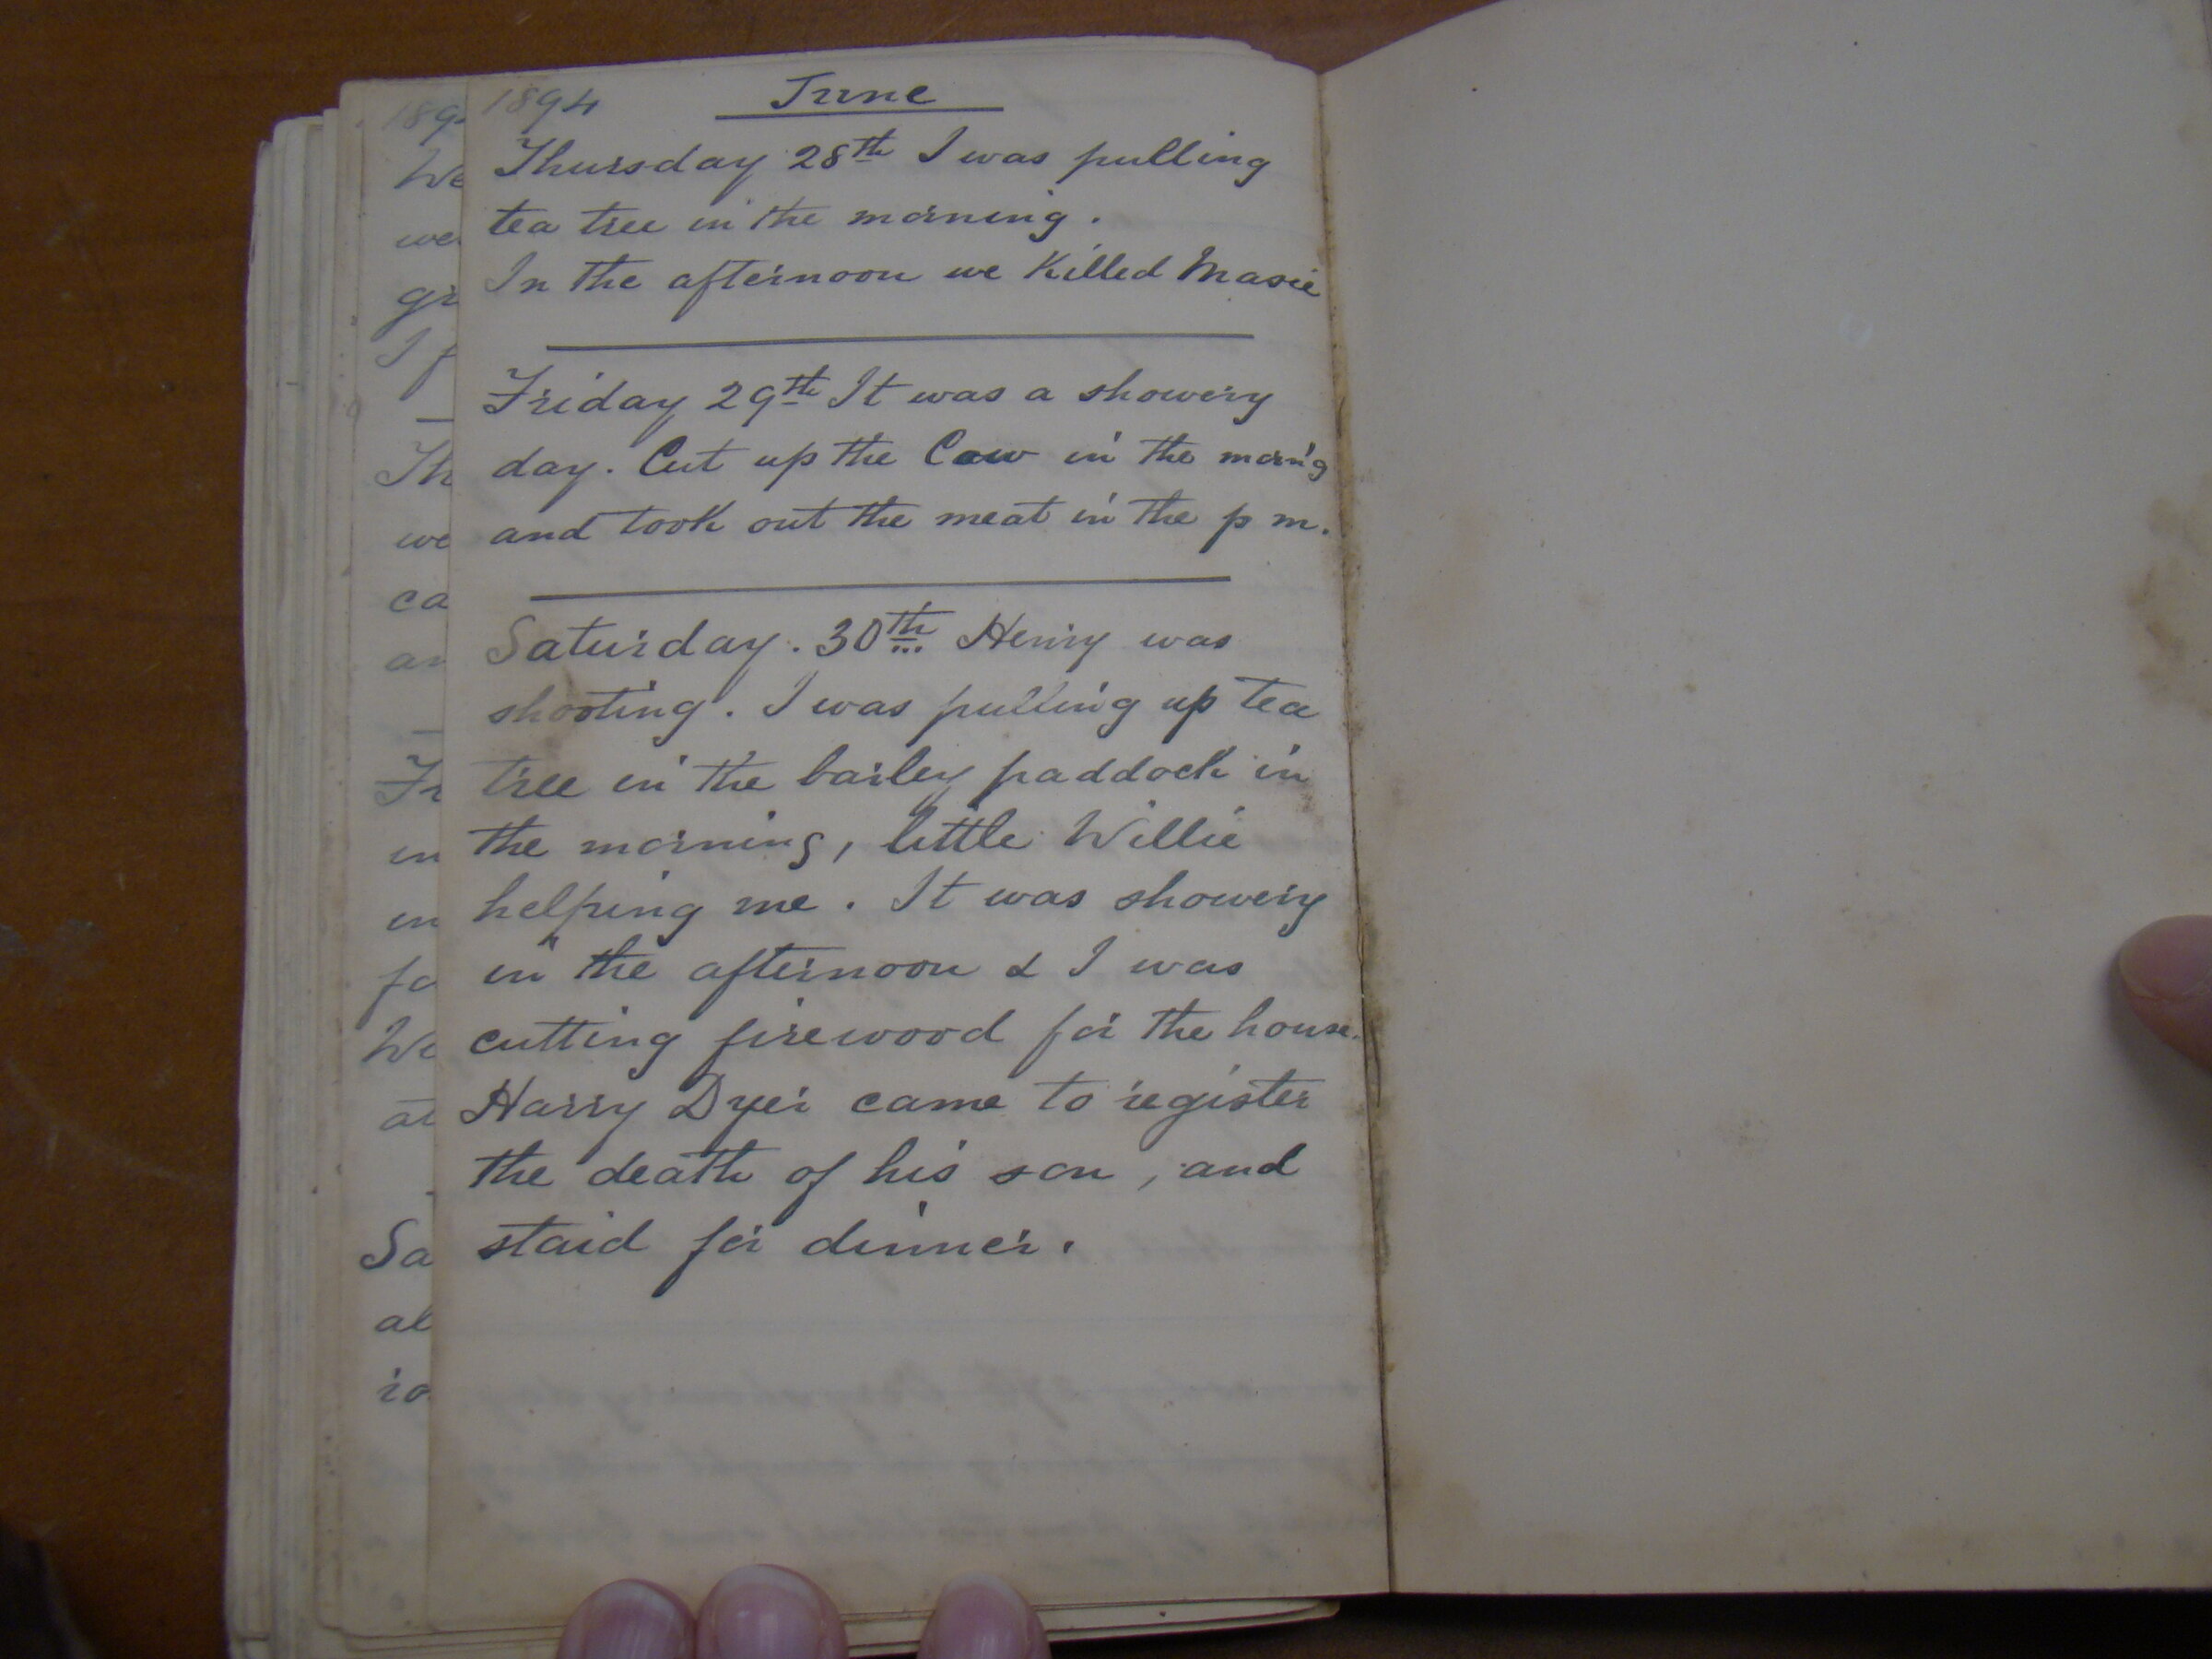 1894 June
Thursday 28th I was pulling
tea tree in the morning.
In the afternoon we Killed Masie
Friday 29th It was a showery
day. Cut up the Cow in the morn'g
and took out the meat in the p m.
Saturday. 30th Henry was
shooting. I was pulling up tea
tree in the barley paddock in
the morning, little Willie
helping me. It was showery
in the afternoon & I was
cutting firewood for the house.
Harry Dyer came to register
the death of his son, and
staid for dinner.
189
We
we
gr
I f
Th
we
ca
an
Fr
in
in
fo
We
at
Sa
al
ro